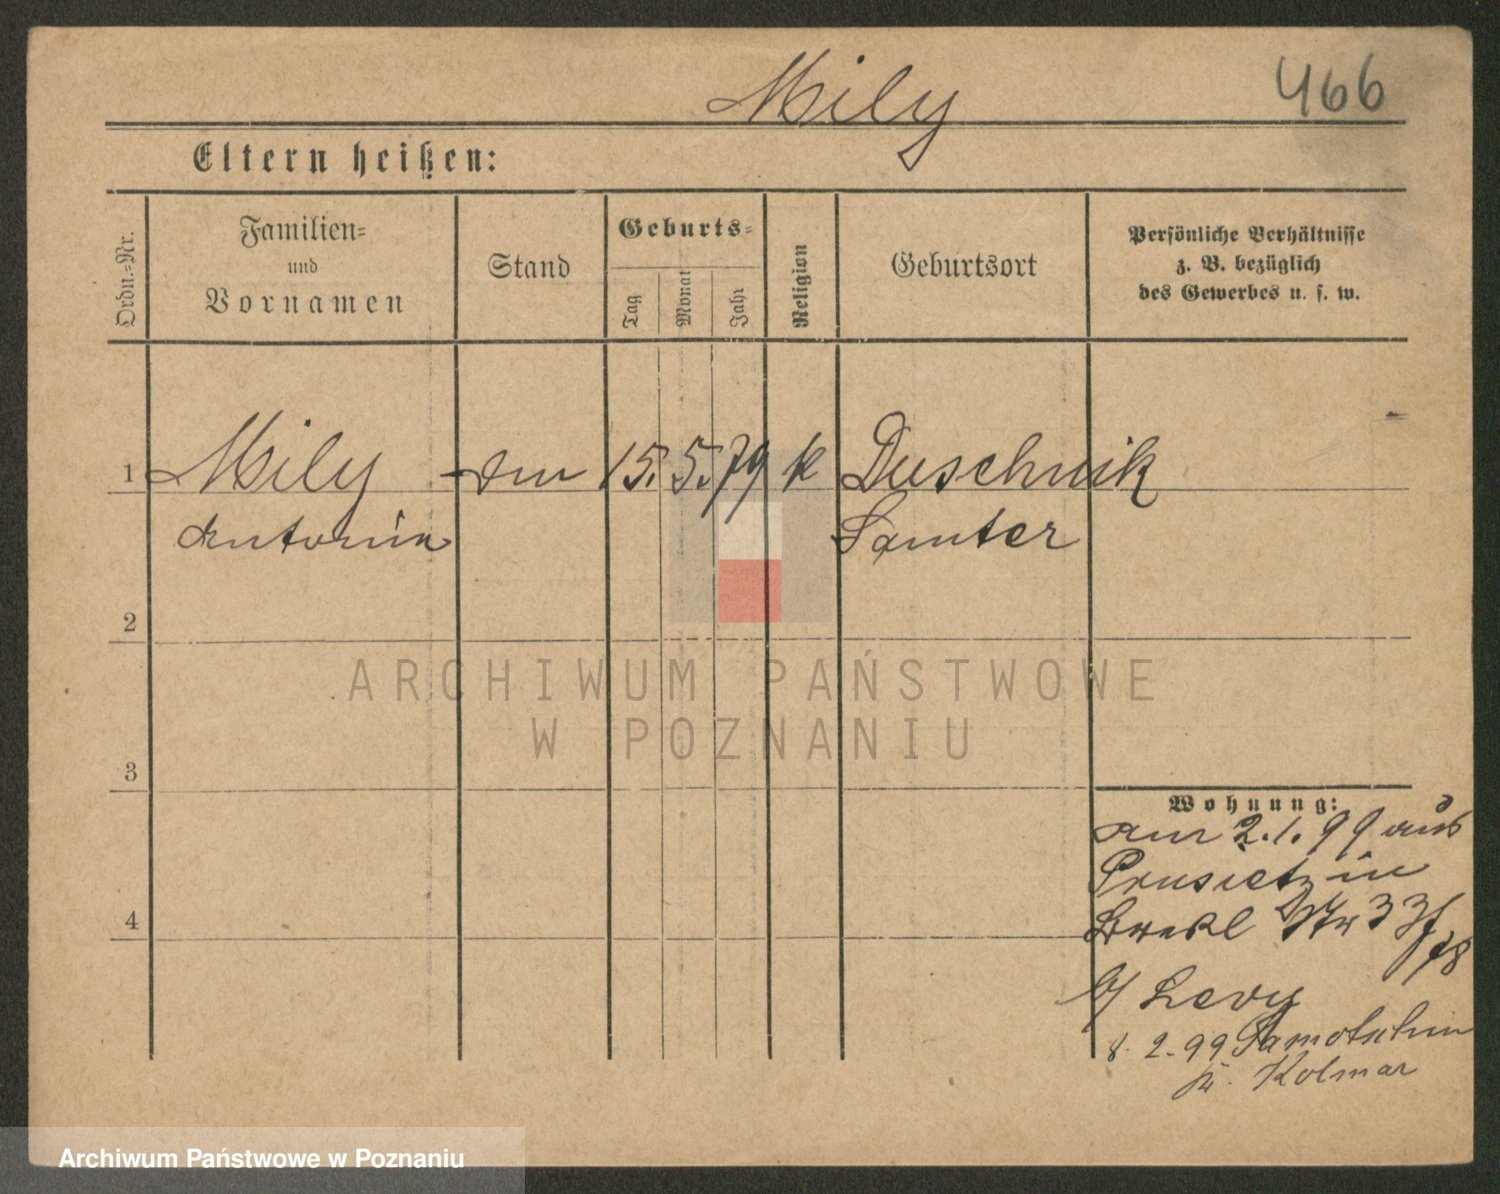 Mily
466
Eltern heißen:
Ordn.=Nr.
Familien=
und
Vornamen
Stand
Geburts=
Tag
Monat
Jahr
Religion
Geburtsort
Persönliche Verhältnisse
z. B. bezüglich
des Gewerbes u. s. w.
1 Mily 15. 5. 79 k Duschnik
Antonin Samter
2
3
4
Wohnung:
am 2.1.99 aus
Prusietz in
Str 33
b/ Levy
8. 2. 99 Samotschin
Kr. Kolmar
ARCHIWUM PAŃSTWOWE
W POZNANIU
Archiwum Państwowe w Poznaniu